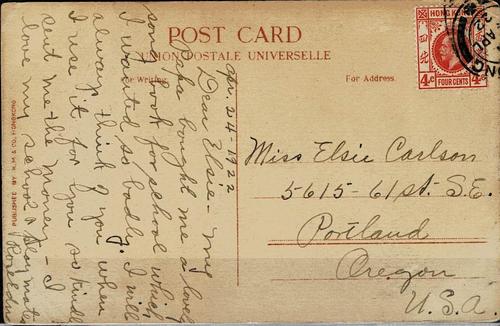 POST CARD
UNION POSTALE UNIVERSELLE
For Writing.
For Address.
HONG KONG
4c
FOUR CENTS
4c
PUBLISHED BY M. & CO., HONGKONG
Apr. 24-1922
Dear Elsie - My
Papa bought me a lovely
song book for school which
I wanted so badly. I will
always think of you when
I use it for you so kindly
sent me the money - I
love my school & playmates
Miss Elsie Carlson
5615-61st. S.E.
Portland
Oregon
U.S.A